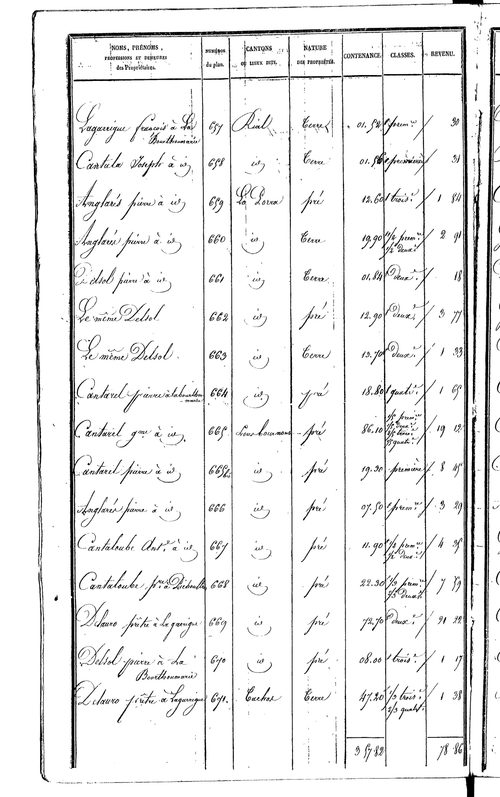 NOMS, PRÉNOMS, PROFESSIONS ET DEMEURES des Propriétaires. NUMÉROS du plan. CANTONS OU LIEUX DITS. NATURE DES PROPRIÉTÉS. CONTENANCE. CLASSES. REVENU.
Lagarrigue françois à La Bourthoumarie 657 Rial Terre 01.52 premre 30
Cantula Joseph à id 658 id Terre 01.56 première 31
Anglarés pierre à id 659 La Porra pré 12.60 troise 1 84
Anglarés pierre à id 660 id Terre 19.90 1/2 premre 1/2 deuxe 2 91
Delsol pierre à id 661 id Terre 01.84 deuxe 18
Le même Delsol 662 id pré 12.90 deuxe 3 77
Le même Delsol 663 id Terre 13.70 deuxe 1 33
Cantarel pierre à 664 id pré 18.80 quate 1 65
Cantarel gme à id 665 pré 86.10 19 12
Cantarel pierre à id 665bis id pré 19.30 première 8 45
Anglarés pierre à id 666 id pré 07.50 premre 3 29
Cantaloube Ante à id 667 id pré 11.90 1/2 premre 1/2 deuxe 4 35
Cantaloube pre à 668 id pré 22.30 1/3 premre 2/3 deuxe 7 79
Delauro prêtre à Lagarrigue 669 id pré 72.70 deuxe 21 22
Delsol pierre à La Bourthoumarie 670 id pré 08.00 troise 1 17
Delauro prêtre à Lagarrigue 671 Terre 47.20 1/3 troise 2/3 quate 1 38
3 57 82 78 86